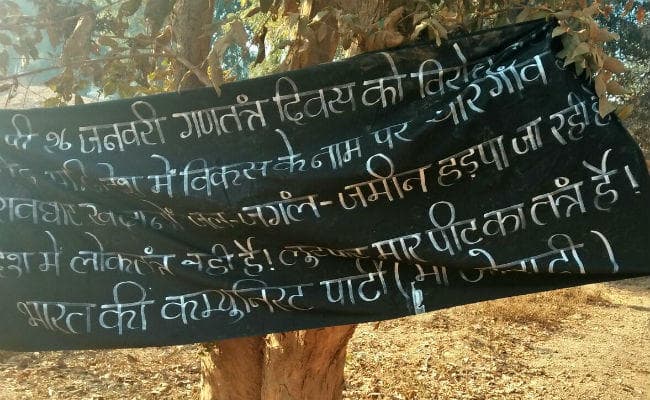 २६ जनवरी गणतंत्र दिवस को विरोध
में विकास के नाम पर चारगांव
जल-जगंल-जमीन हड़पा जा रही है
में लोकतंत्र नही है! लुटपाट मार पीट का तंत्र है!
भारत की कम्युनिस्ट पार्टी (माओवादी)